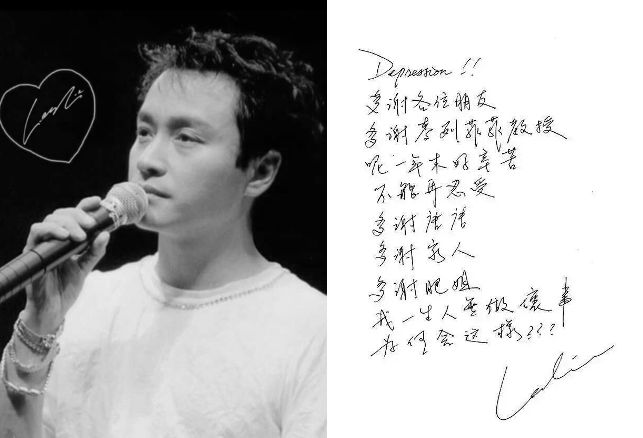 Leslie
Depression !!
多谢各位朋友
多谢麦列菲菲教授
呢一年来好辛苦
不能再忍受
多谢唐唐
多谢家人
多谢肥姐
我一生人无做壞事
为何会这樣???
Leslie